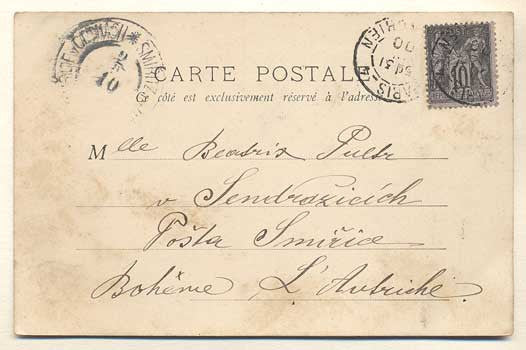 CARTE POSTALE
Ce côté est exclusivement réservé à l'adresse
Mlle Beatrix Pultr
v Sendrazicích
Pošta Smiřice
Bohême L'Autriche
SMIŘIC
PARIS
10